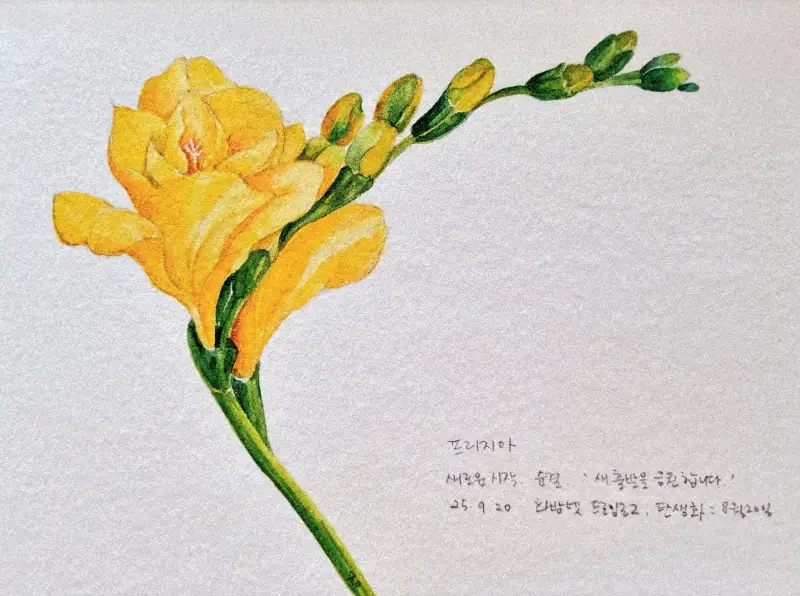 프리지아
새로운 시작. 순결 '새 출발을 응원합니다.'
25. 9. 20 화방넷 드로잉로그, 탄생화 : 8월20일